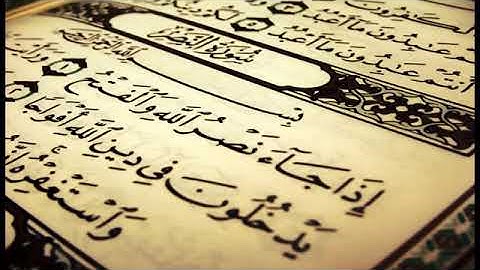 أَنتُمْ عَٰبِدُونَ مَآ أَعْبُدُ
سُورَةُ النَّصْرِ
بِسْمِ اللَّهِ الرَّحْمَٰنِ الرَّحِيمِ
إِذَا جَآءَ نَصْرُ اللَّهِ وَالْفَتْحُ ١
يَدْخُلُونَ فِى دِينِ اللَّهِ أَفْوَاجًا ٢
وَاسْتَغْفِرْهُ